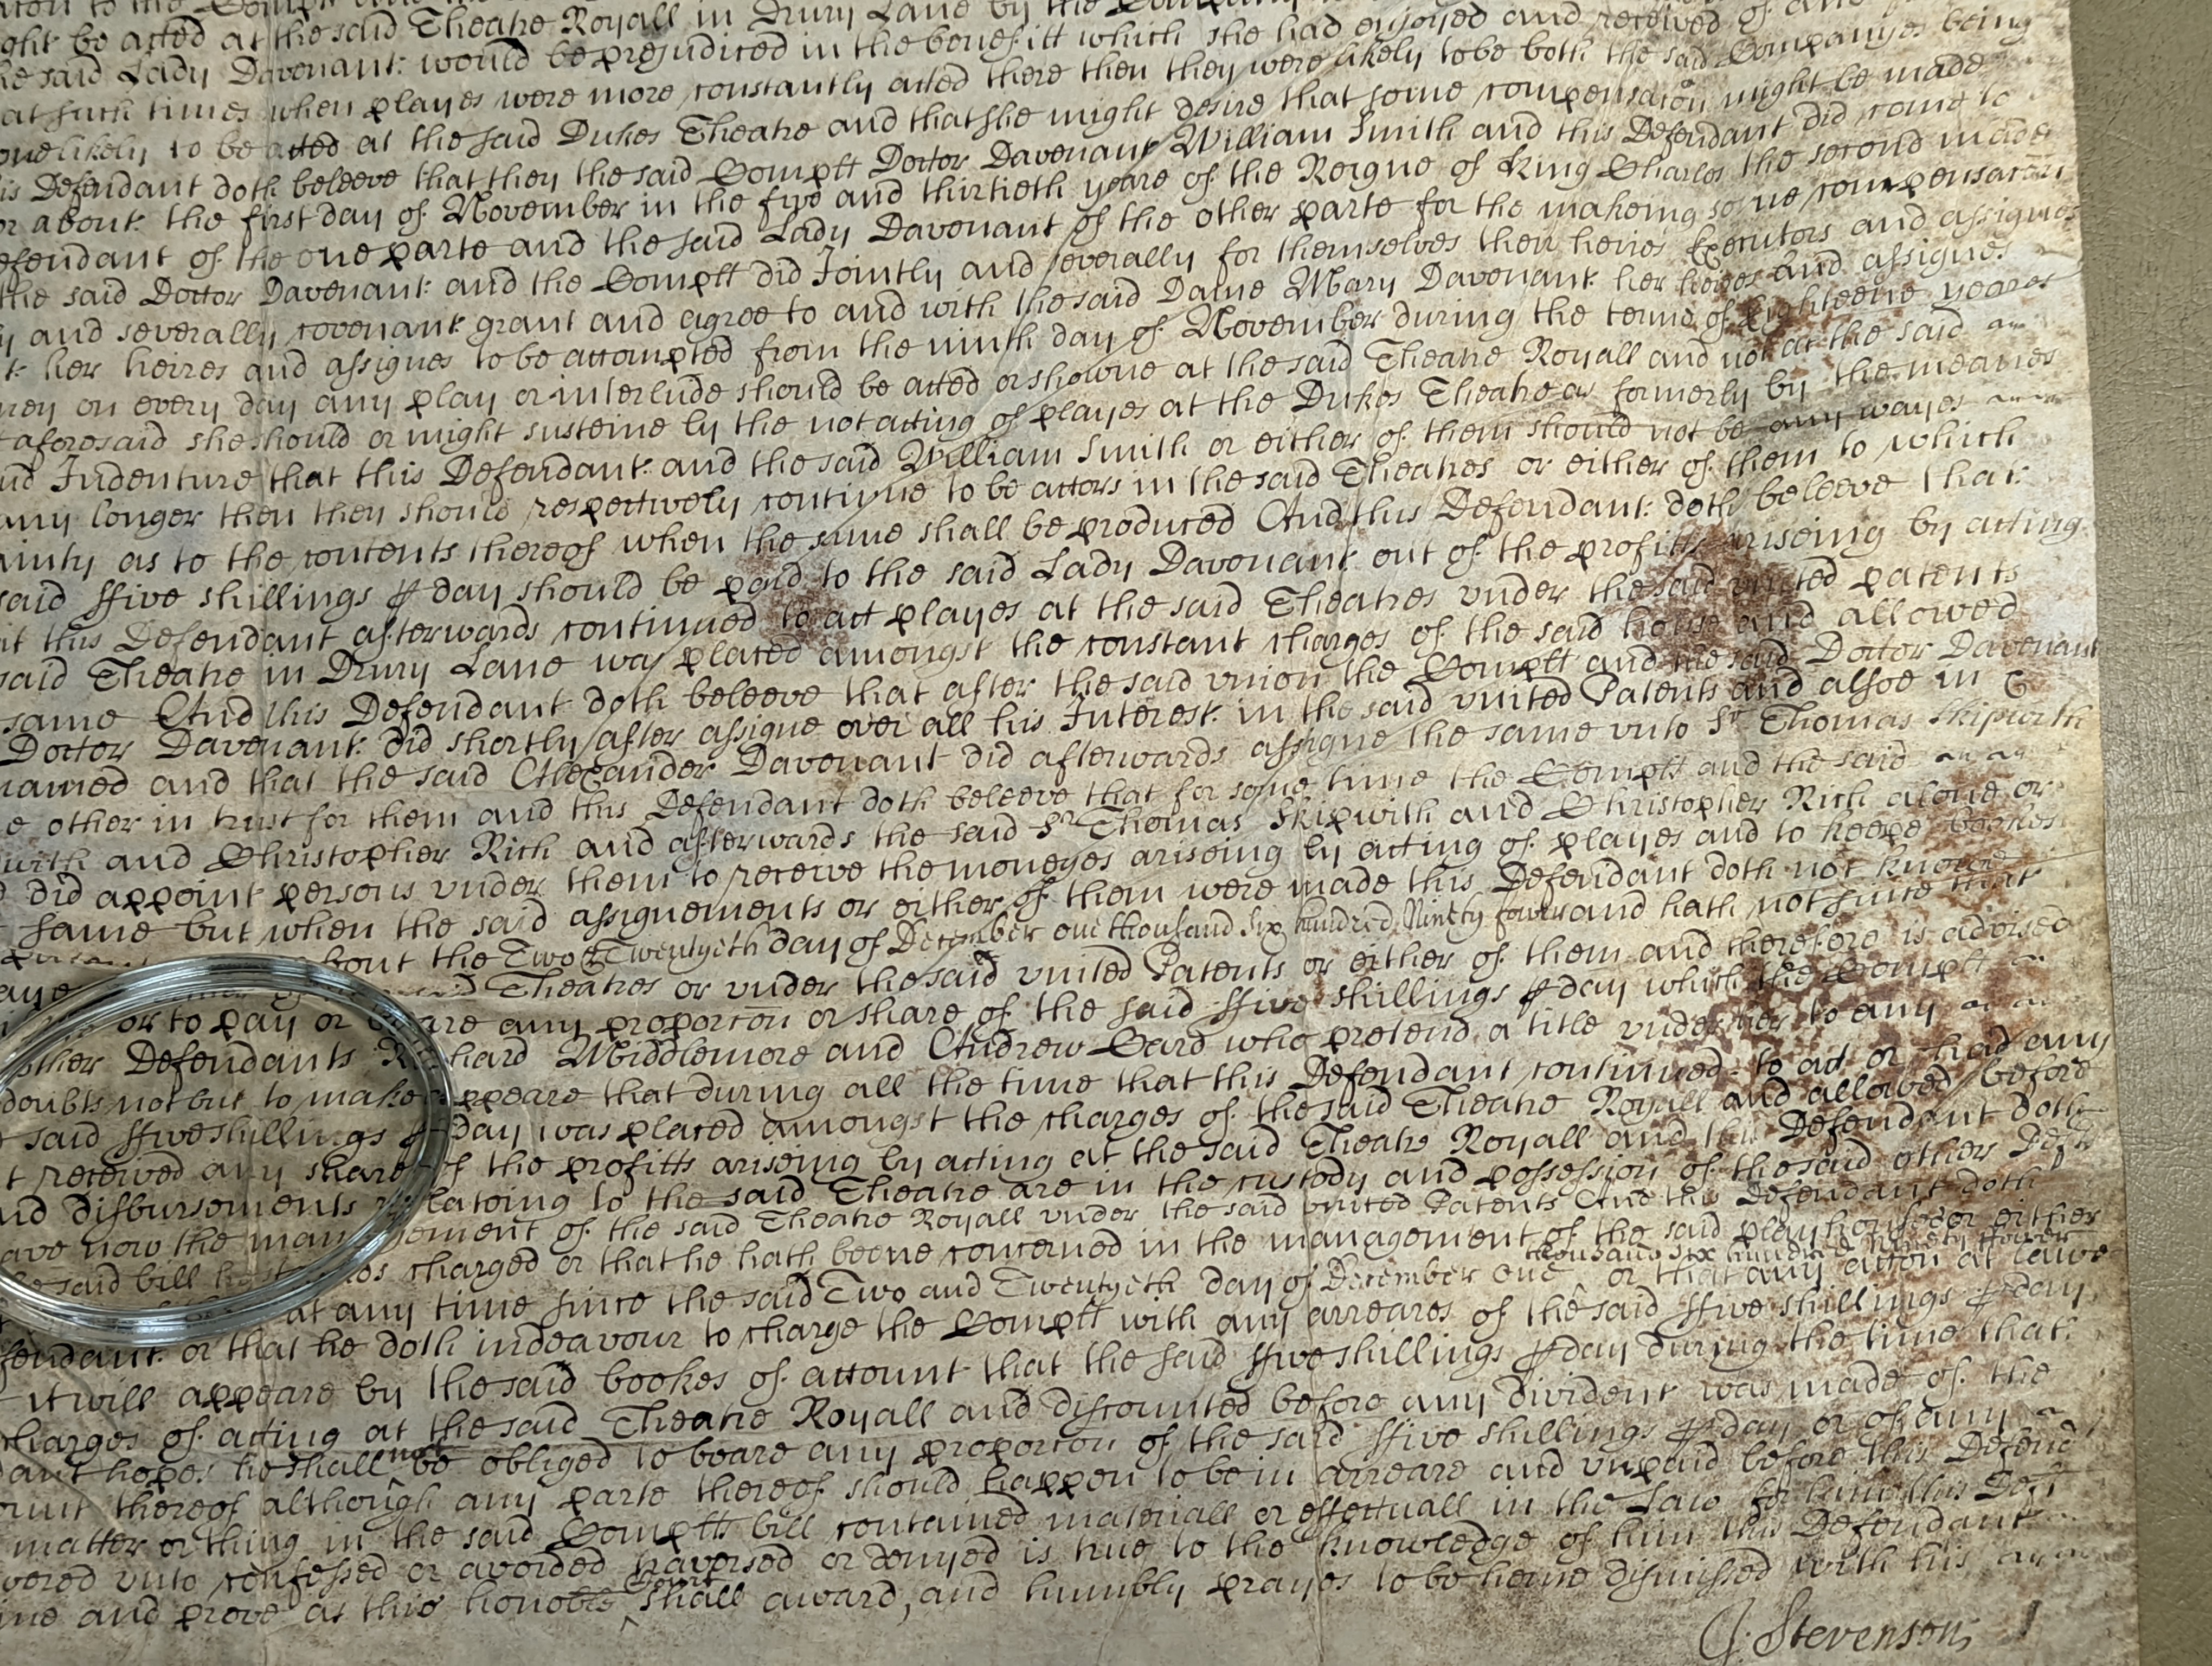 to the Compt
ght be acted at the said Theatre Royall in Drury Lane by the
he said Lady Davenant would be prejudiced in the benefitt which she had enjoyed and received of
at such times when playes were more constantly acted there then they were likely to be both the said Companyes being
likely to be acted at the said Dukes Theatre and that she might desire that some compensacōn might be made
is Defendant doth beleeve that they the said Complt Doctor Davenant William Smith and this Defendant did come to
or about the first day of November in the five and thirtieth yeare of the Reigne of King Charles the second made
efendant of the one parte and the said Lady Davenant of the other parte for the makeing some compensacōn
the said Doctor Davenant and the Complt did Jointly and severally for themselves their heires Executors and assignes
y and severally covenant grant and agree to and with the said Dame Mary Davenant her heires and assignes
t her heires and assignes to be accompted from the ninth day of November during the terme of Eighteene yeares
ney on every day any play or interlude should be acted or showne at the said Theatre Royall and not at the said
aforesaid she should or might susteine by the not acting of playes at the Dukes Theatre as formerly by the meanes
nd Indenture that this Defendant and the said William Smith or either of them should not be any wayes
any longer then they should respectively continue to be actors in the said Theatres or either of them to which
ainty as to the contents thereof when the same shall be produced And this Defendant doth beleeve that
said ffive shillings p day should be paid to the said Lady Davenant out of the profitts ariseing by acting
t this Defendant afterwards continued to act playes at the said Theatres under the said united patents
said Theatre in Drury Lane was placed amongst the constant charges of the said house and allowed
same And this Defendant doth beleeve that after the said union the Complt and the said Doctor Davenant
Doctor Davenant did shortly after assigne over all his Interest in the said united Patents and alsoe in
named and that the said Alexander Davenant did afterwards assigne the same unto Sr Thomas Skipwith
e other in trust for them and this Defendant doth beleeve that for some time the Complt and the said
with and Christopher Rich and afterwards the said Sr Thomas Skipwith and Christopher Rich alone or
did appoint persons under them to receive the moneyes ariseing by acting of playes and to keepe bookes
same but when the said assignements or either of them were made this Defendant doth not knowe
about the Two & Twentyeth day of December one thousand six hundred Ninety fower and hath not since that
Theatres or under the said united Patents or either of them and therefore is advised
or to pay or beare any proporcōn or share of the said ffive shillings p day which the Complt
other Defendants Richard Middlemore and Andrew Card who pretend a title under her to any
doubts not but to make appeare that during all the time that this Defendant continued to act or had any
said ffive shillings p day was placed amongst the charges of the said Theatre Royall and allowed before
t received any share of the profitts ariseing by acting at the said Theatre Royall and this Defendant doth
nd disbursements relateing to the said Theatre are in the custody and possession of the said other Defts
ave now the management of the said Theatre Royall under the said united Patents And this Defendant doth
he said bill charged or that he hath beene concerned in the management of the said playhouses or either
at any time since the said Two and Twentyeth day of December one thousand six hundred ninety ffower or that any accōn at Lawe
fendant or that he doth indeavour to charge the Complt with any arreares of the said ffive shillings p day
it will appeare by the said bookes of account that the said ffive shillings p day during the time that
charges of acting at the said Theatre Royall and discounted before any divident was made of the
ant hopes he shall not be obliged to beare any proporcōn of the said ffive shillings p day or of any
ount thereof although any parte thereof should happen to be in arreare and unpaid before this Defend
matter or thing in the said Complts bill contained materiall or effectuall in the Law for him this Deft
wered unto confessed or avoided traversed or denyed is true to the knowledge of him this Defendant
ine and prove as this honoble Court shall award, and humbly prayes to be hence dismissed with his
J: Stevenson